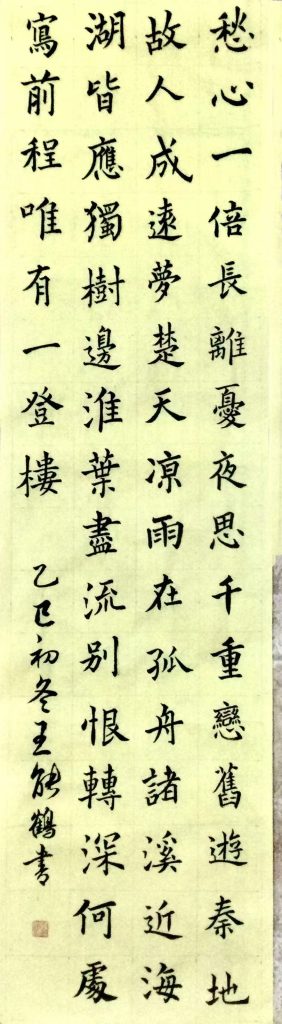 愁心一倍長離憂夜思千重戀舊遊秦地
故人成遠夢楚天凉雨在孤舟諸溪近海
湖皆應獨樹邊淮葉盡流别恨轉深何處
寫前程唯有一登樓
乙巳初冬王能鶴書